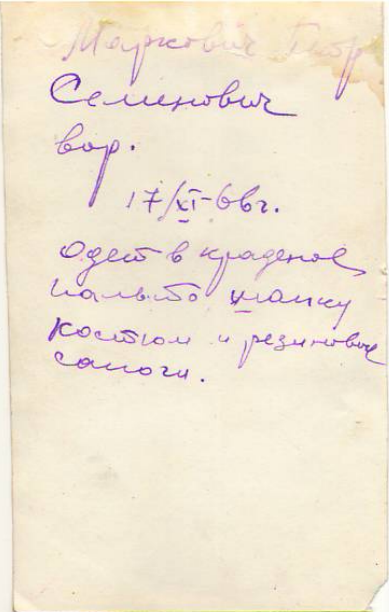 Маркович Пётр
Семенович
вор.
17/XI-66г.
Одет в краденое
пальто шапку
костюм и резиновые
сапоги.